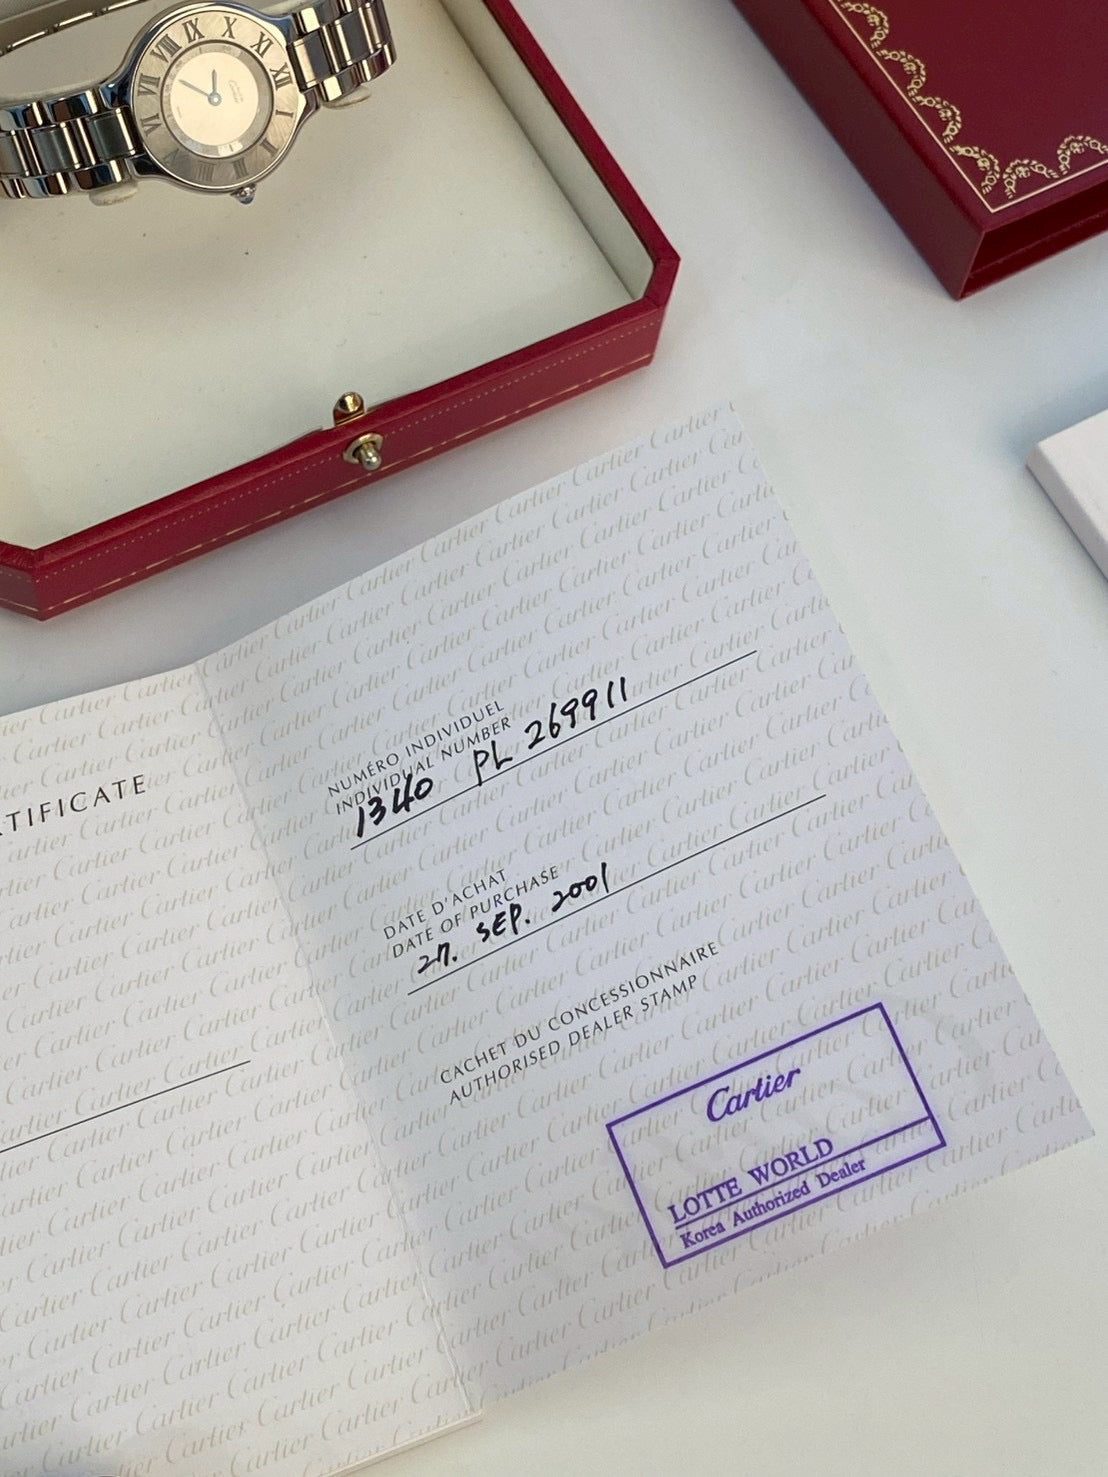 IX X XI XII I
VIII VII VI
RTIFICATE
NUMÉRO INDIVIDUEL
INDIVIDUAL NUMBER
1340 PL 269911
DATE D'ACHAT
DATE OF PURCHASE
27. SEP. 2001
CACHET DU CONCESSIONNAIRE
AUTHORISED DEALER STAMP
Cartier
LOTTE WORLD
Korea Authorized Dealer